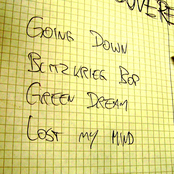 Going Down
Blitzkrieg Bop
Green Dream
Lost my mind